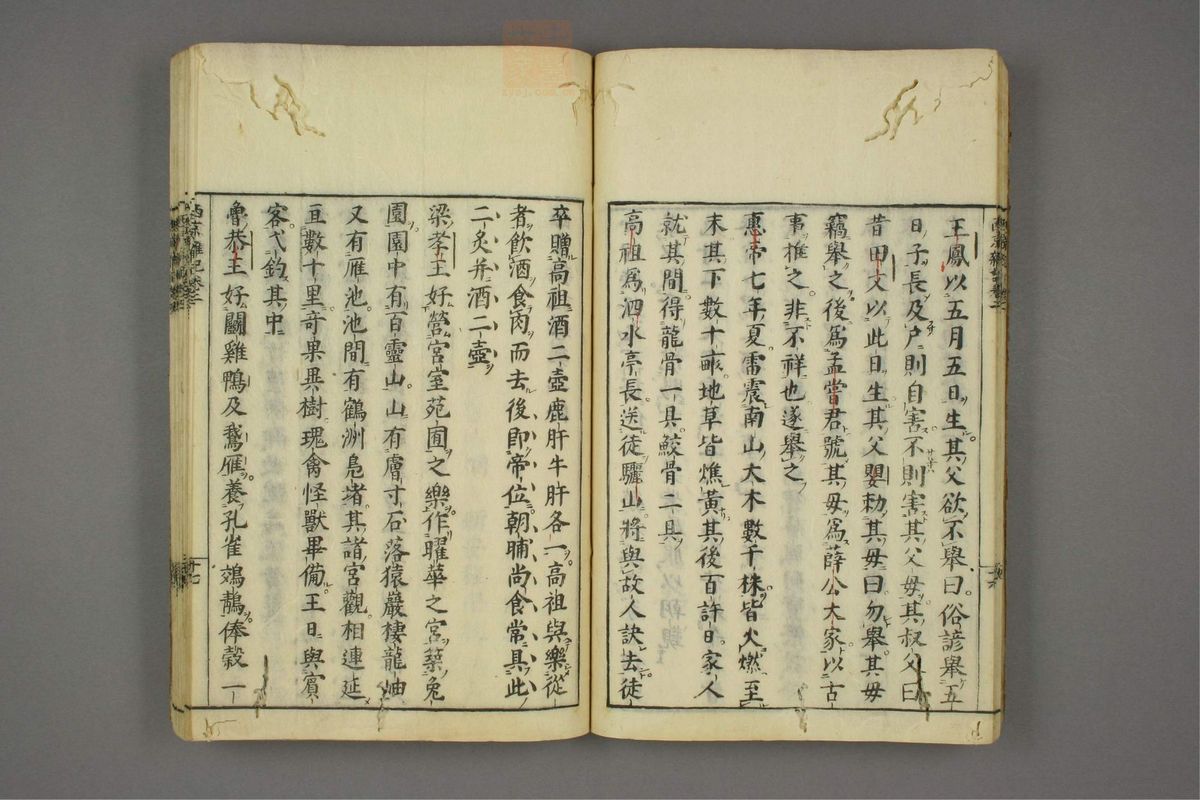 王鳳以五月五日生其父欲不舉曰俗諺舉五
日子長及戶則自害不則害其父母其叔父曰
昔田文以此日生其父嬰勑其母曰勿舉其母
竊舉之後爲孟嘗君號其母爲薛公大家以古
事推之非不祥也遂舉之
惠帝七年夏雷震南山大木數千株皆火燃至
末其下數十畝地草皆燋黃其後百許日家人
就其間得龍骨一具鮫骨二具
高祖爲泗水亭長送徒驪山將與故人訣去徒
卒贈高祖酒二壺鹿肝牛肝各一高祖與樂從
者飲酒食肉而去後即帝位朝晡尚食常具此
二炙并酒二壺
梁孝王好營宮室苑囿之樂作曜華之宮築兔
園園中有百靈山山有膚寸石落猿巖棲龍岫
又有雁池池間有鶴洲鳧渚其諸宮觀相連延
亘數十里奇果異樹瑰禽怪獸畢備王日與賓
客弋釣其中
魯恭王好鬭雞鴨及鵝雁養孔雀鵁鶄俸穀一
西京雜記卷二
十七